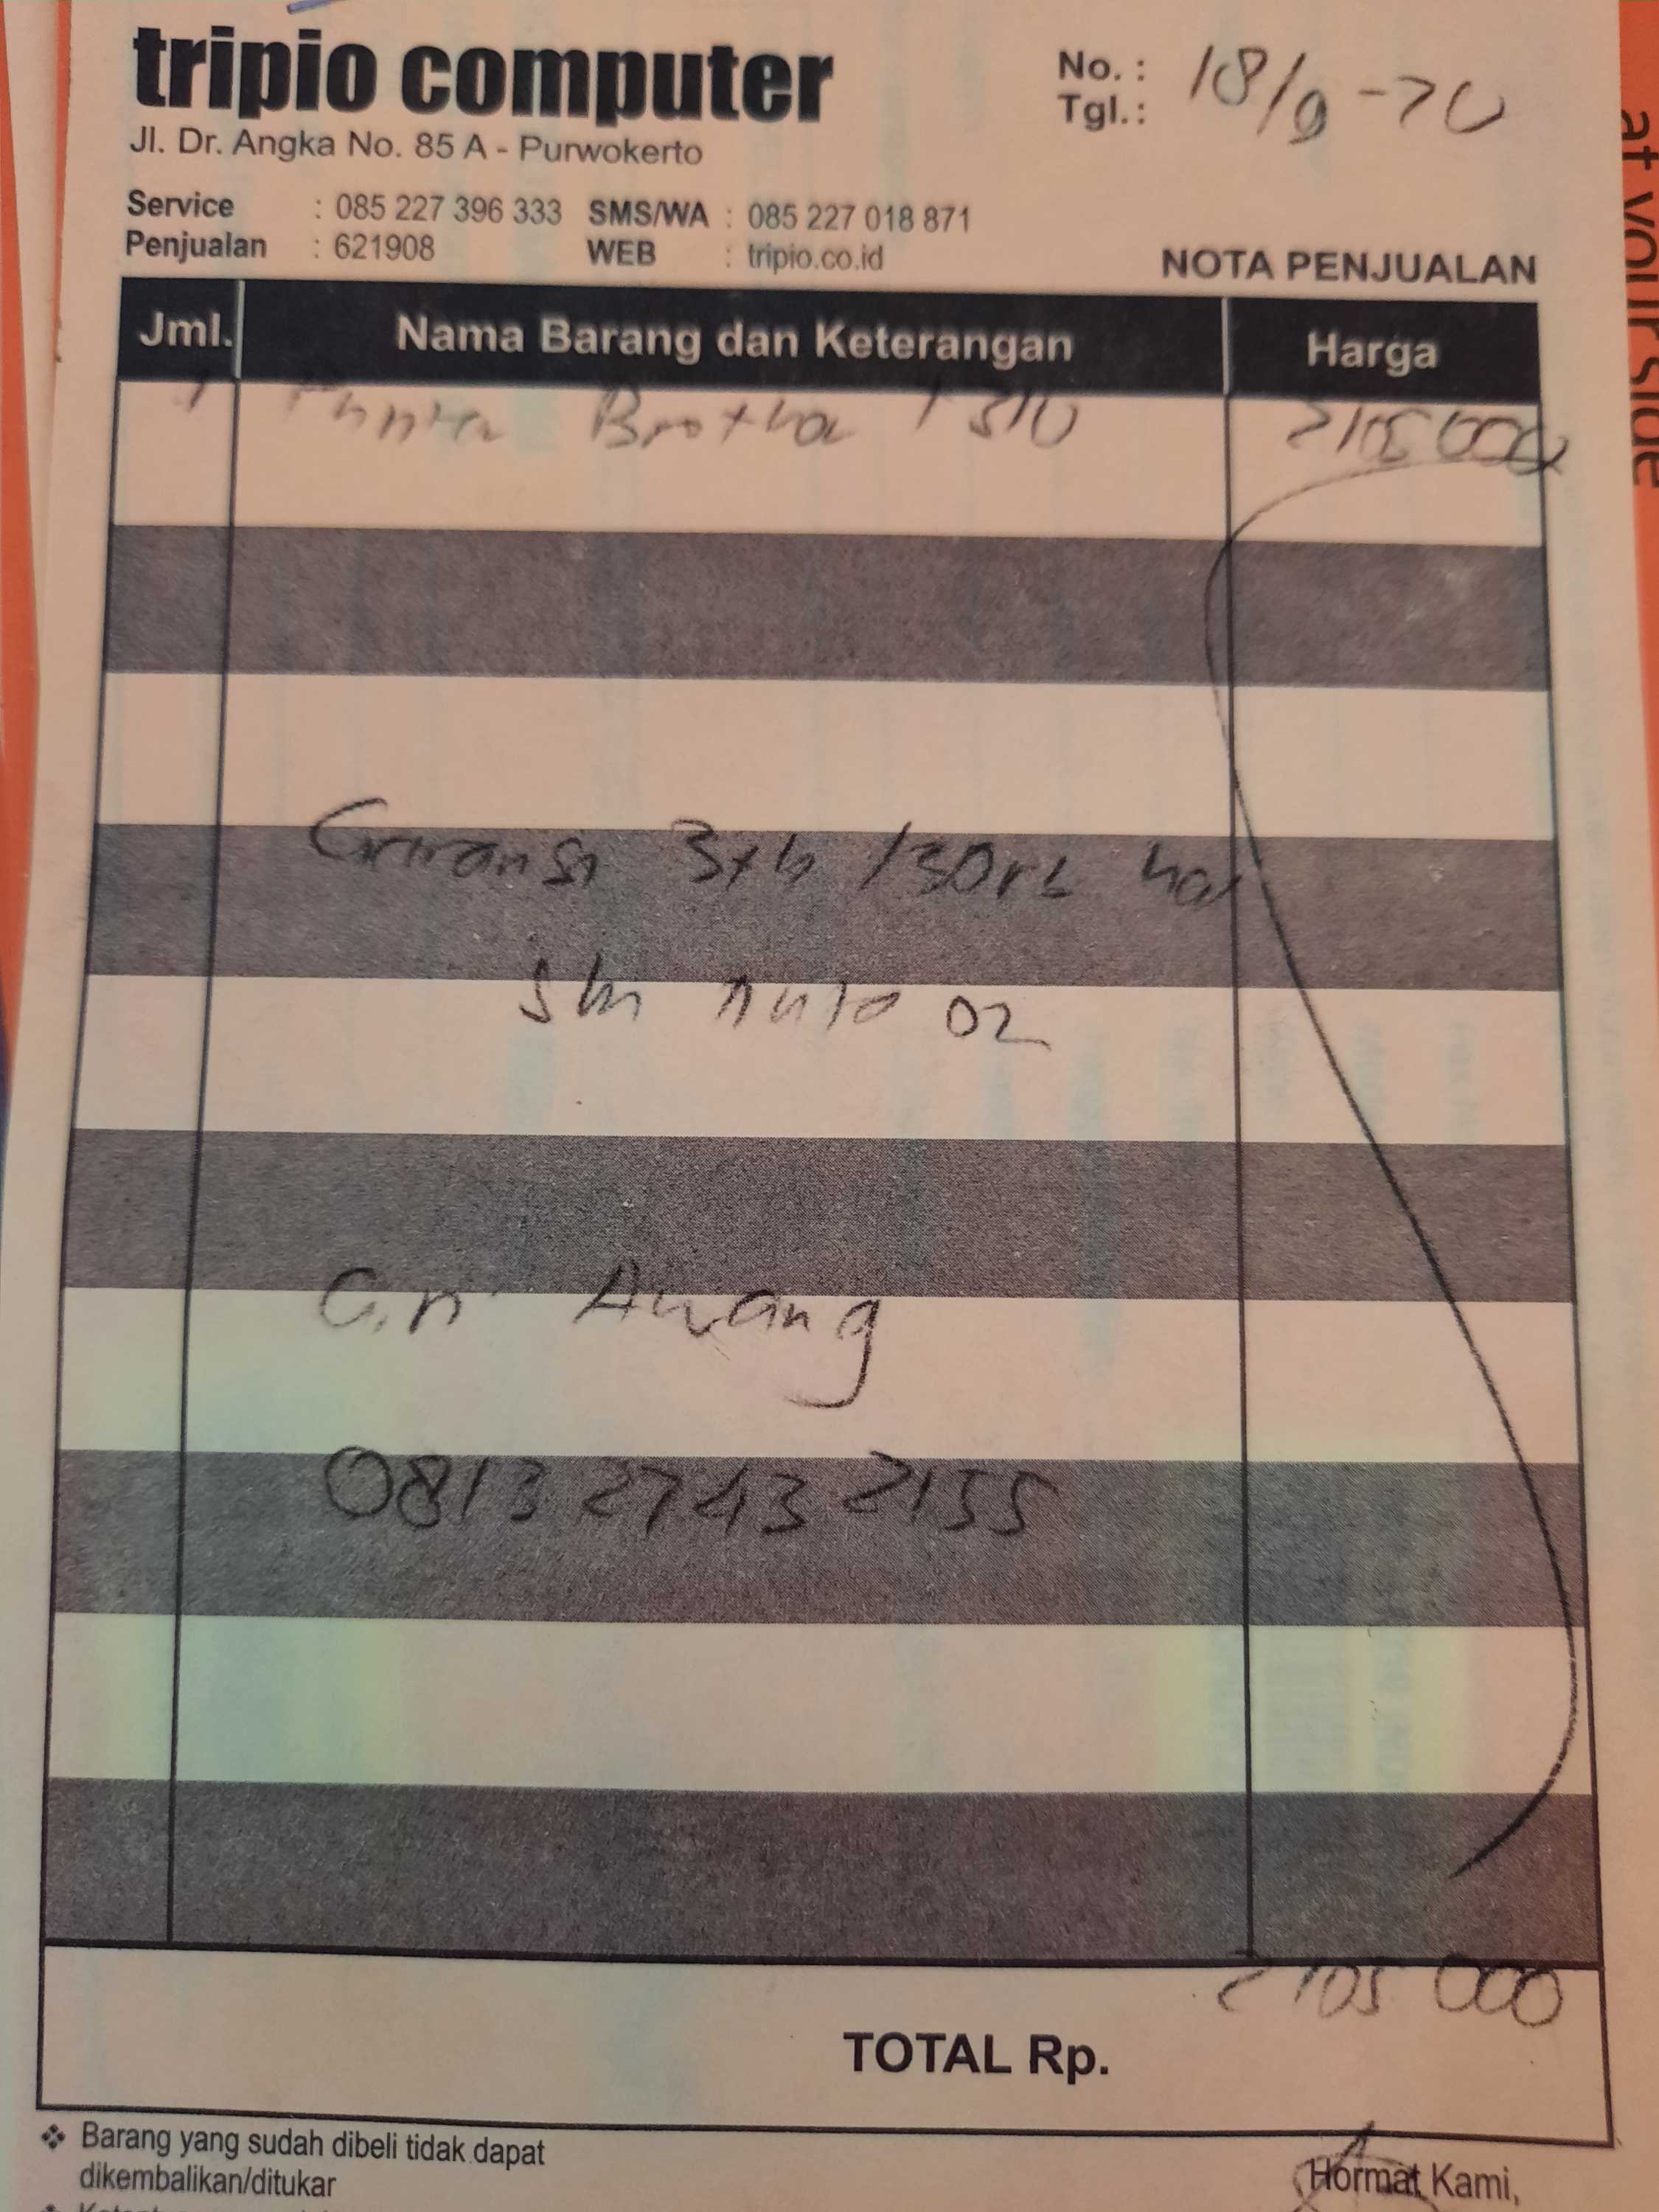 tripio computer
Jl. Dr. Angka No. 85 A - Purwokerto
No. :
Tgl.: 18/9-20
Service : 085 227 396 333 SMS/WA : 085 227 018 871
Penjualan : 621908 WEB : tripio.co.id
NOTA PENJUALAN
Jml. Nama Barang dan Keterangan Harga
1 Printer Brother T310 2105000
Garansi 3th /30rb
02
Awang
0813 2743 2155
2105 000
TOTAL Rp.
❖ Barang yang sudah dibeli tidak dapat
dikembalikan/ditukar
Hormat Kami,